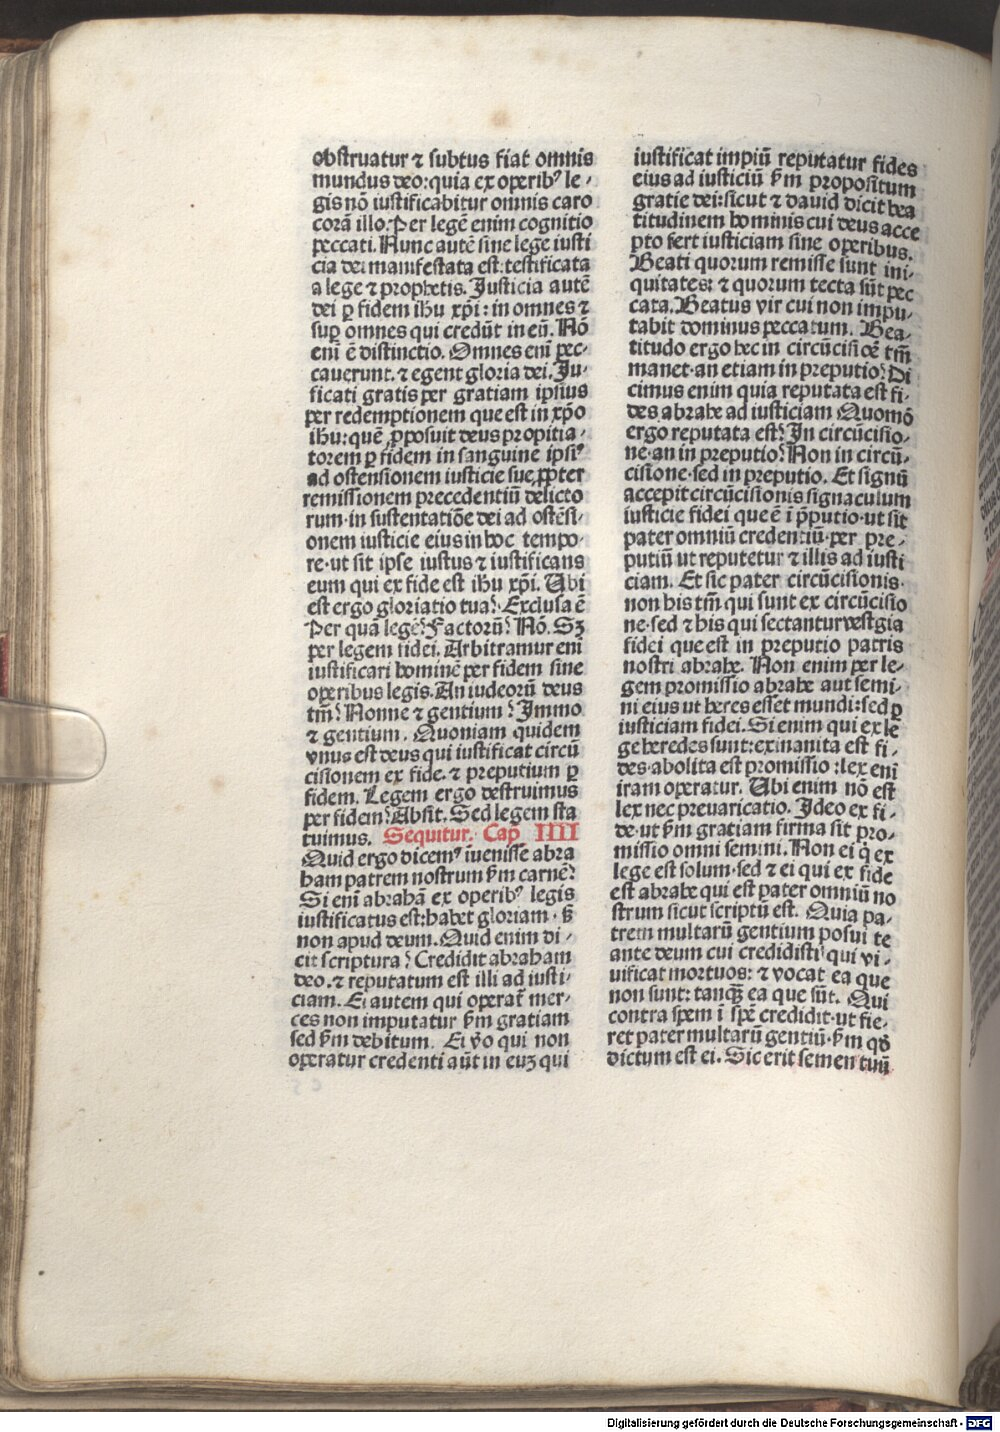 obstruatur ⁊ subtus fiat̉ omnis
mundus deo: quia ex operibꝰ le⸗
gis nō iustificabitur omnis caro
corā illo. Per legē enim cognitio
peccati. Nunc autē sine lege iusti
cia dei manifestata est: testificata
a lege ⁊ prophetis. Justicia autē
dei ꝑ fidem ihu xp̄i: in omnes ⁊
suꝑ omnes qui credūt in eū. Nō
eni ē distinctio. Omnes eni pec⸗
cauerunt. ⁊ egent gloria dei. Ju⸗
ficati gratis per gratiam ipsius
per redemptionem que est in xp̄o
ihu: quē ꝓposuit deus propitia⸗
torem ꝑ fidem in sanguine ipsiꝰ
ad ostensionem iusticie sue ꝓpter
remissionem precedentiū delicto
rum· in sustentatiōe dei ad ostēsi⸗
onem iusticie eius in hoc tempo⸗
re· ut sit ipse iustus ⁊ iustificans
eum qui ex fide est ihu xp̄i. Ubi
est ergo gloriatio tua? Exclusa ē
Per quā legē? Factorū? Nō. Sꝫ
per legem fidei. Arbitramur eni
iustificari hominē per fidem sine
operibus legis. An iudeorū deus
tm̄? Nonne ⁊ gentium? Immo
⁊ gentium. Quoniam quidem
vnus est deus qui iustificat circū
cisionem ex fide. ⁊ preputium ꝑ
fidem. Legem ergo destruimus
per fidem? Absit. Sed legem sta
tuimus. Sequitur. Cap̄ IIII
Quid ergo dicemꝰ īuenisse abra
ham patrem nostrum ẜm carnē?
Si eni abrahā ex operibꝰ legis
iustificatus est: habet gloriam· sꝫ
non apud deum. Quid enim di⸗
cit scriptura? Credidit abraham
deo. ⁊ reputatum est illi ad iusti⸗
ciam. Ei autem qui operat̉ mer⸗
ces non imputatur ẜm gratiam
sed ẜm debitum. Ei v̄o qui non
operatur credenti aūt in euꝫ qui
iustificat impiū reputatur fides
eius ad iusticiū ẜm propositum
gratie dei: sicut ⁊ dauid dicit bea
titudinem hominis cui deus acce
pto fert iusticiam sine operibus.
Beati quorum remisse sunt ini⸗
quitates: ⁊ quorum tecta sūt pec
cata. Beatus vir cui non impu⸗
tabit dominus peccatum. Bea⸗
titudo ergo hec in circūcisiōe tm̄
manet· an etiam in preputio? Di
cimus enim quia reputata est fi⸗
des abrahe ad iusticiam Quomō
ergo reputata est? In circūcisio⸗
ne· an in preputio? Non in circū⸗
cisione· sed in preputio. Et signū
accepit circūcisionis signaculum
iusticie fidei que ē ī p̄putio· ut sit
pater omniū credentiū· per pre⸗
putiū ut reputetur ⁊ illis ad iusti
ciam. Et sic pater circūcisionis·
non his tm̄ qui sunt ex circūcisio
ne· sed ⁊ his qui sectantur vestgia
fidei que est in preputio patris
nostri abrahe. Non enim per le⸗
gem promissio abrahe aut semi⸗
ni eius ut heres esset mundi: sed ꝑ
iusticiam fidei. Si enim qui ex le
ge heredes sunt: exinanita est fi⸗
des· abolita est promissio: lex eni
iram operatur. Ubi enim nō est
lex nec preuaricatio. Ideo ex fi⸗
de· ut ẜm gratiam firma sit pro⸗
missio omni semini. Non ei q̇ ex
lege est solum· sed ⁊ ei qui ex fide
est abrahe qui est pater omniū no
strum sicut scriptū est. Quia pa⸗
trem multarū gentium posui te
ante deum cui credidisti qui vi⸗
uificat mortuos: ⁊ vocat ea que
non sunt: tanq̄ꝫ ea que sūt. Qui
contra spem ī spē credidit· ut fie⸗
ret pater multarū gentiū· ẜm qd̄
dictum est ei. Sic erit semen tuū
Digitalisierung gefördert durch die Deutsche Forschungsgemeinschaft - DFG